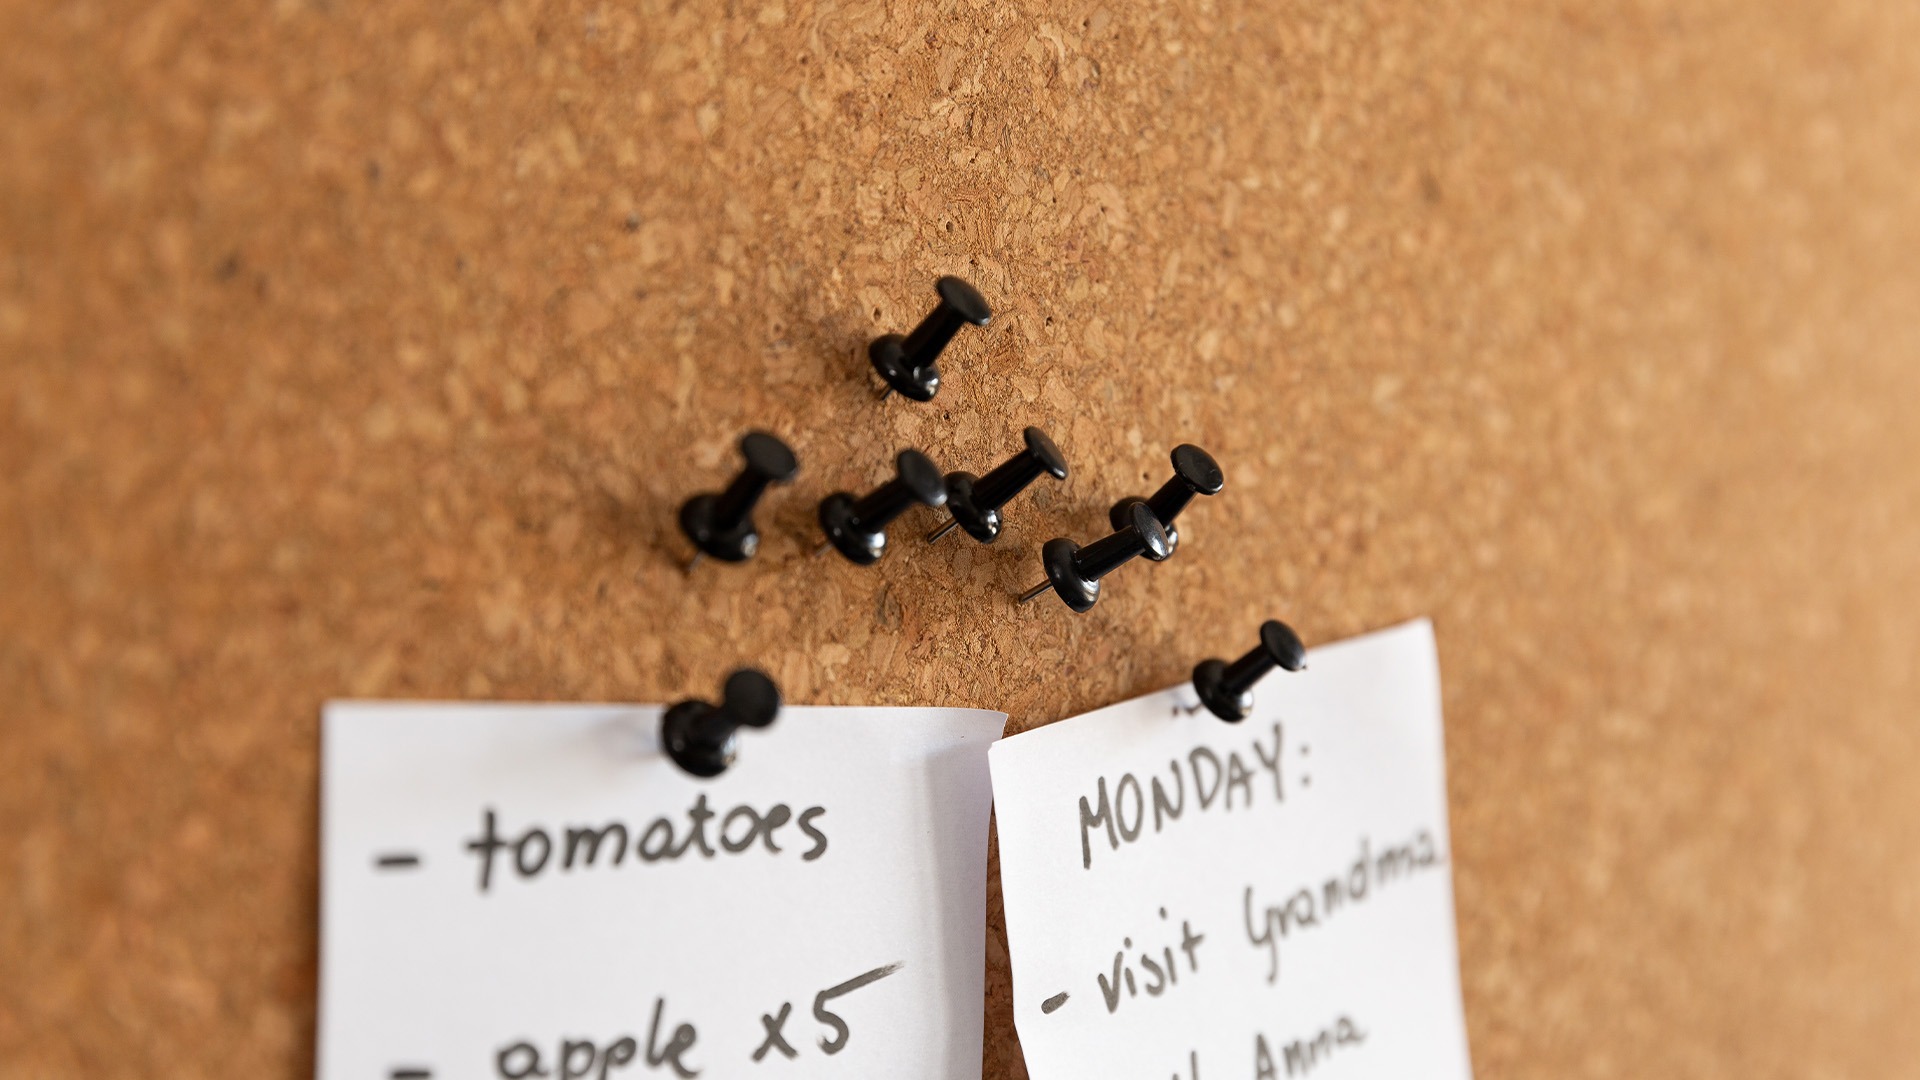 - tomatoes
- apple x5
MONDAY:
- visit Grandma
Anna